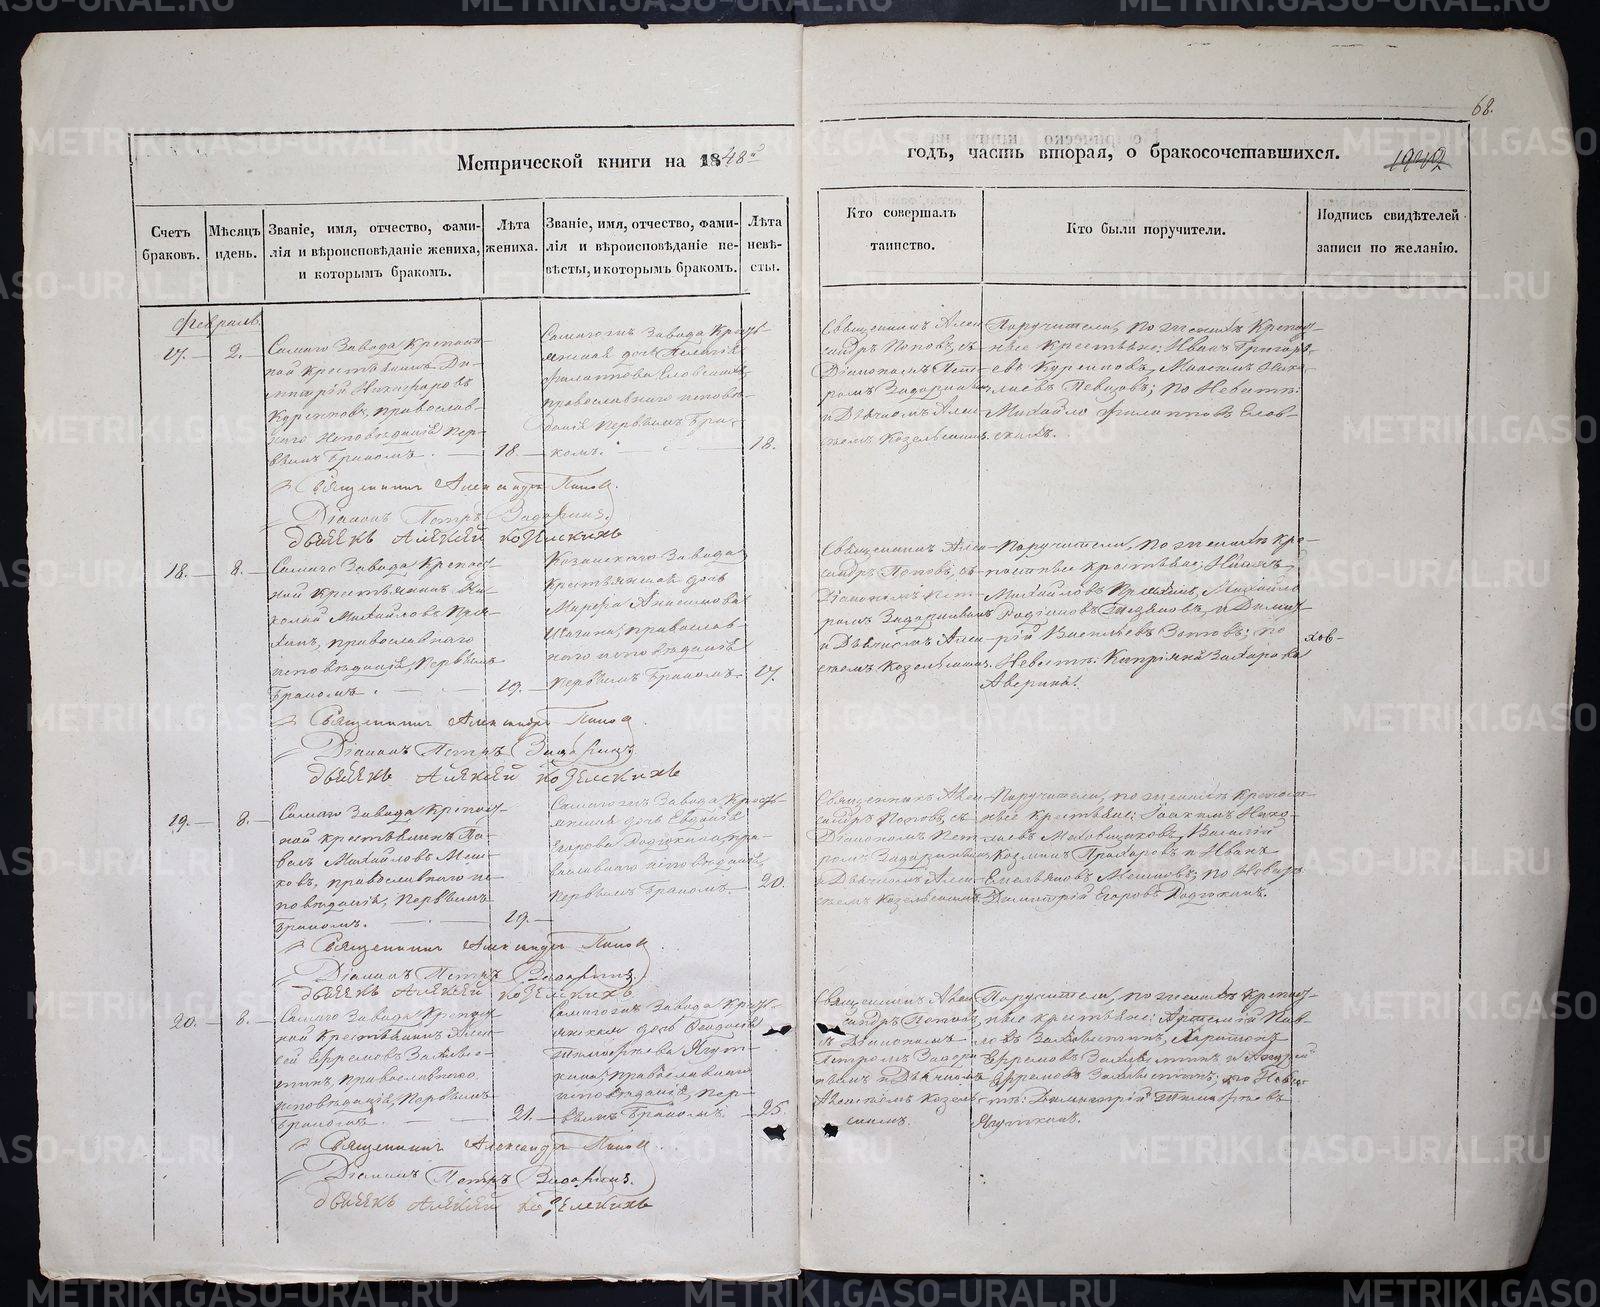 68.
Метрической книги на 1848й
годъ, часть вторая, о бракосочетавшихся.
Счетъ браковъ.
Мѣсяцъ и день.
Званіе, имя, отчество, фами-
лія и вѣроисповѣданіе жениха,
и которымъ бракомъ.
Лѣта
жениха.
Званіе, имя, отчество, фами-
лія и вѣроисповѣданіе не-
вѣсты, и которымъ бракомъ.
Лѣта
невѣ-
сты.
Кто совершалъ
таинство.
Кто были поручители.
Подпись свидѣтелей
записи по желанію.
Февраль
17. 2.
Самаго Завода Крѣпост-
ной крестьянинъ Ди-
митрій Никифоровъ
православ-
наго исповѣданія пер-
вымъ бракомъ. 18.
Самагожъ Завода Крес-
тьянская дочь Пелагія
Филаттова
православнаго исповѣ-
данія первымъ бра-
комъ. 18.
Священникъ Алек-
сандръ Поповъ, съ
Діакономъ Пет-
ромъ Задоринымъ
и Дьячкомъ Алек-
сѣемъ Козельскимъ.
Поручители, по женихѣ Крѣпост-
ные крестьяне: Иванъ Григорь-
евъ Максимъ Нико-
лаевъ Певцовъ; по Невѣстѣ:
Михайло Филатповъ
Священникъ Александръ Поповъ.
Діаконъ Петръ Задоринъ.
Дьячекъ Алексѣй Козелскихъ
18. 8.
Самаго Завода Крѣпост-
ной крестьянинъ Ни-
колай Михайловъ
православнаго
исповѣданія, первымъ
бракомъ. 19.
Казанскаго Завода
крестьянская дочь
Марѳа Анисимова
православ-
наго исповѣданія
первымъ бракомъ. 17.
Священникъ Алек-
сандръ Поповъ, съ
Діакономъ Пет-
ромъ Задоринымъ
и Дьячкомъ Алек-
сѣемъ Козельскимъ.
Поручители, по женихѣ Крѣ-
постные крестьяне: Иванъ
Михайловъ Михайло
Родіоновъ и Димит-
рій Васильевъ Зотовъ; по
Невѣстѣ: Кипріянъ Захаровъ
Аверинъ.
Священникъ Александръ Поповъ.
Діаконъ Петръ Задоринъ
Дьячекъ Алексѣй Козелскихъ
19. 8.
Самаго Завода Крѣпост-
ной крестьянинъ Па-
велъ Михайловъ Меш-
ковъ, православнаго ис-
повѣданія, первымъ
бракомъ. 19.
Самагожъ Завода Кресть-
янская дочь Евдокія
Егорова пра-
вославнаго исповѣданія,
первымъ бракомъ. 20.
Священникъ Алек-
сандръ Поповъ, съ
Діакономъ Пет-
ромъ Задоринымъ
и Дьячкомъ Алек-
сѣемъ Козельскимъ
Поручители, по женихѣ Крѣпост-
ные крестьяне: Іоакимъ Нико-
лаевъ Василій
Козминъ Прохаровъ и Иванъ
Емельяновъ Мешковъ; по Невѣстѣ
Димитрій Егоровъ
Священникъ Александръ Поповъ.
Діаконъ Петръ Задоринъ.
Дьячекъ Алексѣй Козелскихъ
20. 8.
Самаго Завода Крѣпост-
ной крестьянинъ Алек-
сѣй Ефремовъ
православнаго
исповѣданія, первымъ
бракомъ. 21.
Самагожъ Завода Кресть-
янская дочь Ѳеодосія
Тимоѳеева Ягут-
кина, православнаго
исповѣданія, пер-
вымъ бракомъ. 25.
Священникъ Алек-
сандръ Поповъ
съ Діакономъ
Петромъ Задори-
нымъ и Дьячкомъ
Алексѣемъ Козель-
скимъ.
Поручители, по женихѣ Крѣпост-
ные крестьяне: Артемій Пав-
ловъ Харитонъ
Ефремовъ и Андрей
Ефремовъ по Невѣс-
тѣ: Димитрій Тимоѳѣевъ
Ягуткинъ.
Священникъ Александръ Поповъ
Діаконъ Петръ Задоринъ.
Дьячекъ Алексѣй Козелскихъ
METRIKI.GASO-URAL.RU